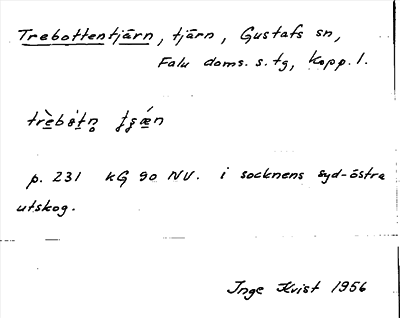 Trebottentjärn, tjärn, Gustafs sn,
Falu doms. s. tg, Kopp. l.
trèbòtn̥ t̠s̠ǽn
p. 231 kG 90 NV. i socknens syd-östra
utskog.
Inge Kvist 1956